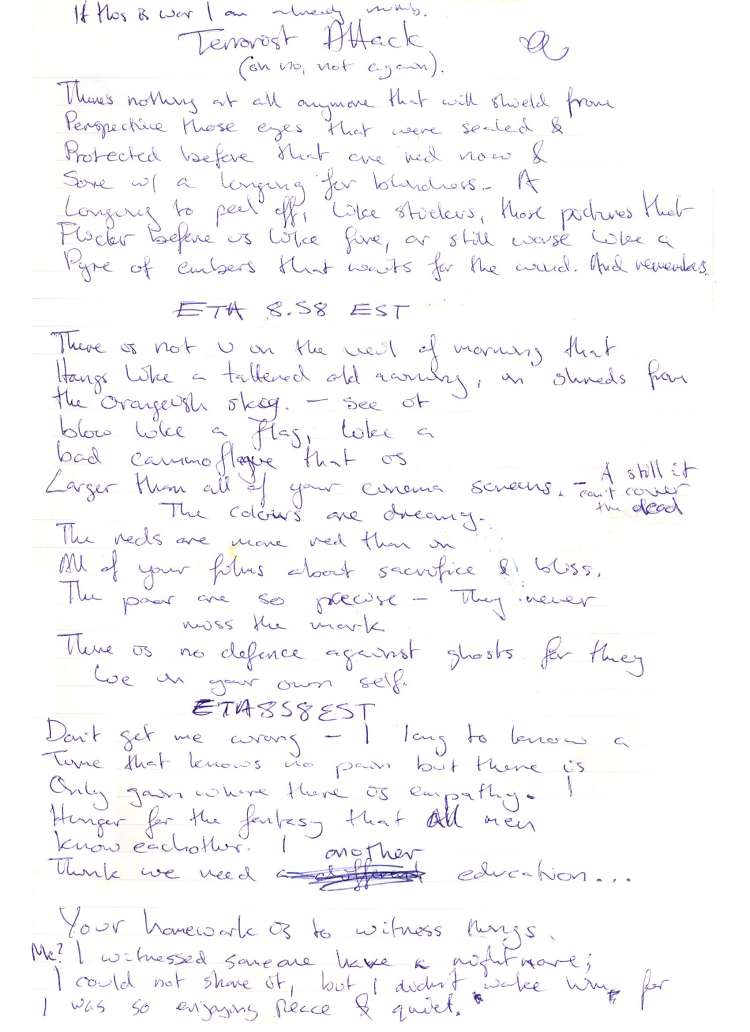 If this is war I am already numb.
Terrorist Attack
(oh no, not again).
There's nothing at all anymore that will shield from
Perspective those eyes that were sealed &
Protected before that are red now &
Sore w/ a longing for blindness - A
Longing to peel off, like stickers, those pictures that
Flicker before us like fire, or still worse like a
Pyre of embers that waits for the wind. And remembers.
ETA 8.58 EST
There is not u on the veil of morning that
Hangs like a tattered old awning, in shreds from
the orangeish sky. - see it
blow like a flag, like a
bad cammoflague that is
Larger than all of your cinema screens. - & still it
can't cover
the dead
The colours are dreamy.
The reds are more red than in
All of your films about sacrifice & bliss.
The poor are so precise - They never
miss the mark
There is no defence against ghosts for they
live in your own self.
ETA 858 EST
Don't get me wrong - I long to know a
Time that knows no pain but there is
Only gain where there is empathy. I
Hunger for the fantasy that All men
know eachother. I
another
Think we need a education...
Your homework is to witness things.
Me? I witnessed someone have a nightmare;
I could not share it, but I didn't wake him for
I was so enjoying peace & quiet.